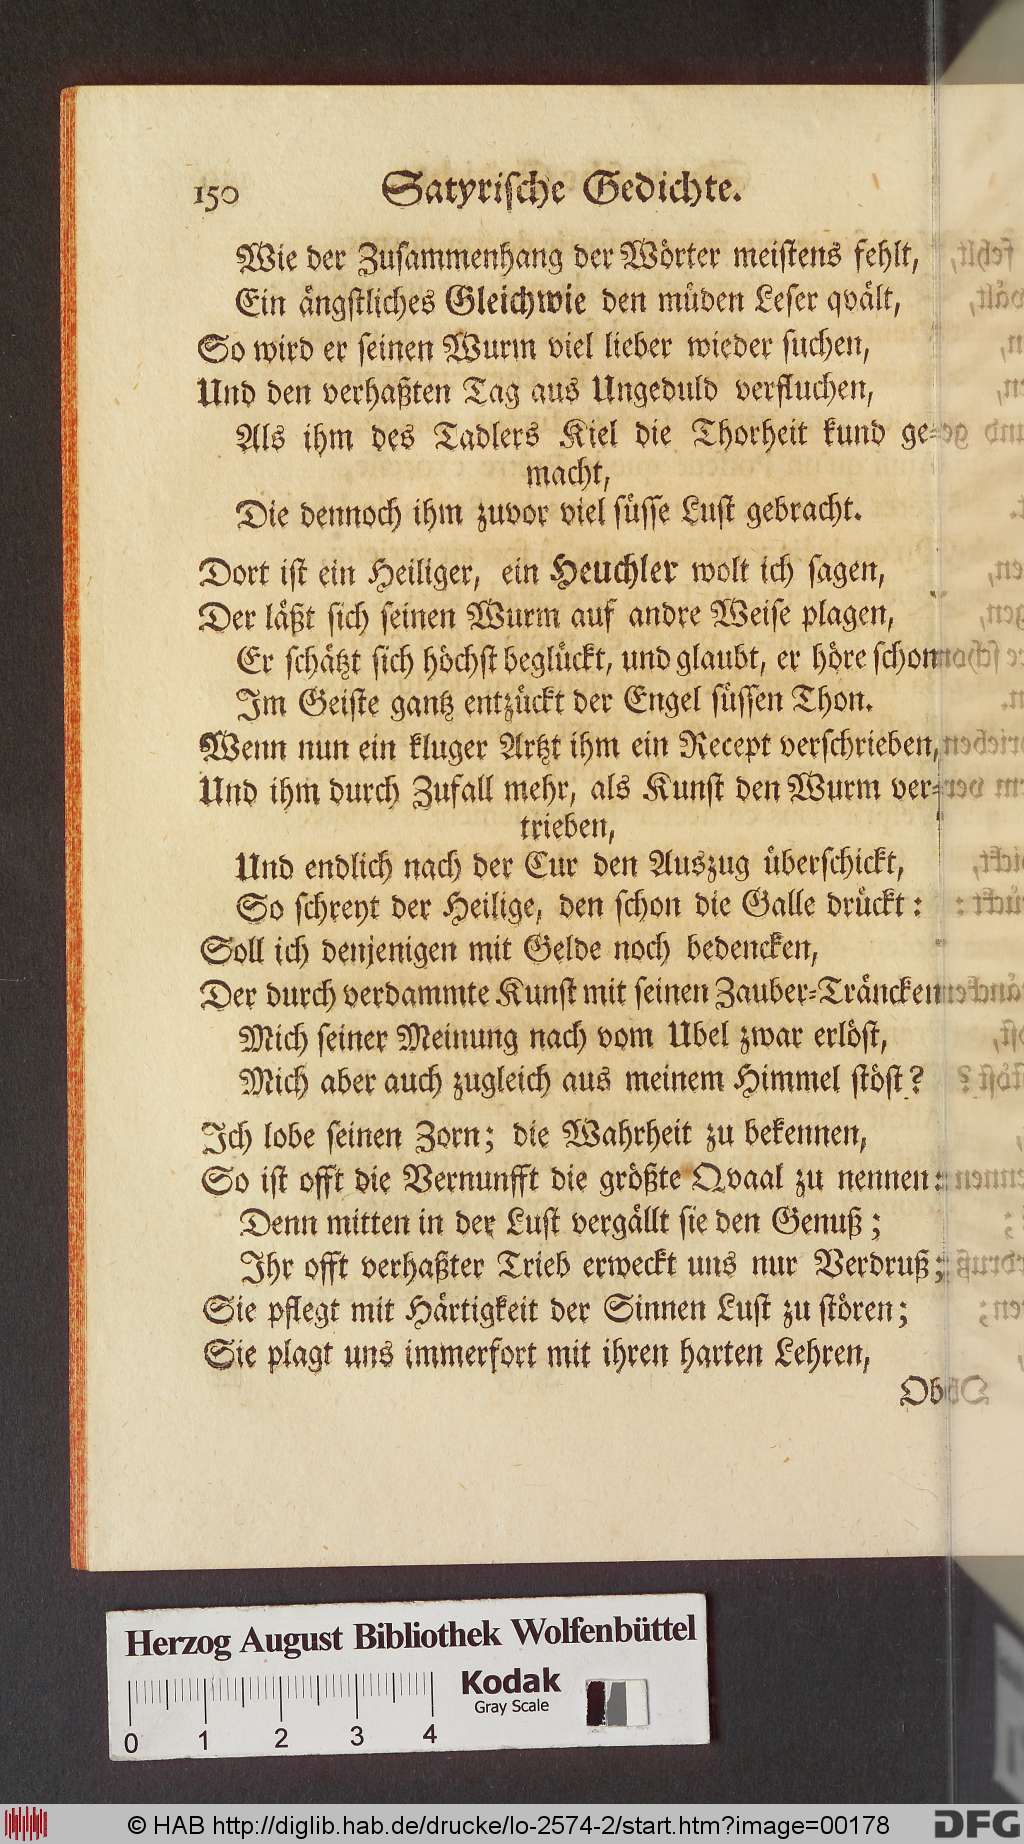 150 Satyrische Gedichte.
Wie der Zusammenhang der Wörter meistens fehlt,
Ein ängstliches Gleichwie den müden Leser qvält,
So wird er seinen Wurm viel lieber wieder suchen,
Und den verhaßten Tag aus Ungeduld verfluchen,
Als ihm des Tadlers Kiel die Thorheit kund ge-
macht,
Die dennoch ihm zuvor viel süsse Lust gebracht.
Dort ist ein Heiliger, ein Heuchler wolt ich sagen,
Der läßt sich seinen Wurm auf andre Weise plagen,
Er schätzt sich höchst beglückt, und glaubt, er höre schon
Im Geiste gantz entzückt der Engel süssen Thon.
Wenn nun ein kluger Artzt ihm ein Recept verschrieben,
Und ihm durch Zufall mehr, als Kunst den Wurm ver-
trieben,
Und endlich nach der Cur den Auszug überschickt,
So schreyt der Heilige, den schon die Galle drückt:
Soll ich denjenigen mit Gelde noch bedencken,
Der durch verdammte Kunst mit seinen Zauber-Träncken
Mich seiner Meinung nach vom Ubel zwar erlöst,
Mich aber auch zugleich aus meinem Himmel stöst?
Ich lobe seinen Zorn; die Wahrheit zu bekennen,
So ist offt die Vernunfft die größte Qvaal zu nennen:
Denn mitten in der Lust vergällt sie den Genuß;
Ihr offt verhaßter Trieb erweckt uns nur Verdruß;
Sie pflegt mit Härtigkeit der Sinnen Lust zu stören;
Sie plagt uns immerfort mit ihren harten Lehren,
Ob
Herzog August Bibliothek Wolfenbüttel
Kodak
Gray Scale
0 1 2 3 4
© HAB http://diglib.hab.de/drucke/lo-2574-2/start.htm?image=00178
DFG